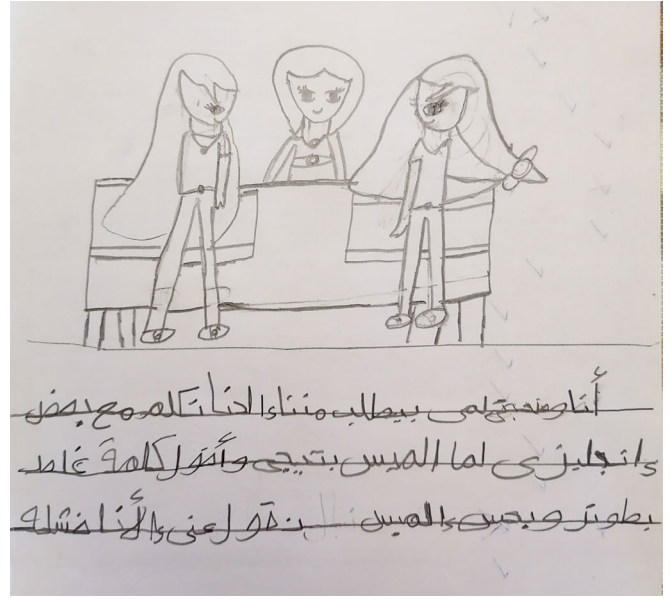 أنا وصحبتى لمى بيطلب مننا إن احنا نتكلم مع بعض
إنجليزى لما الميس بتيجى وأقول كلمة غلط
بطوتر وبحس إن الميس بتقول عنى إن أنا فشله